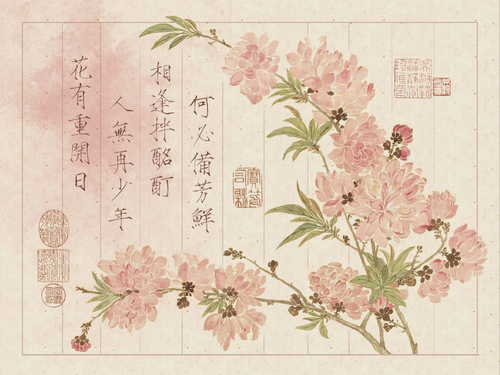 花有重開日
人無再少年
相逢拌酩酊
何必備芳鮮